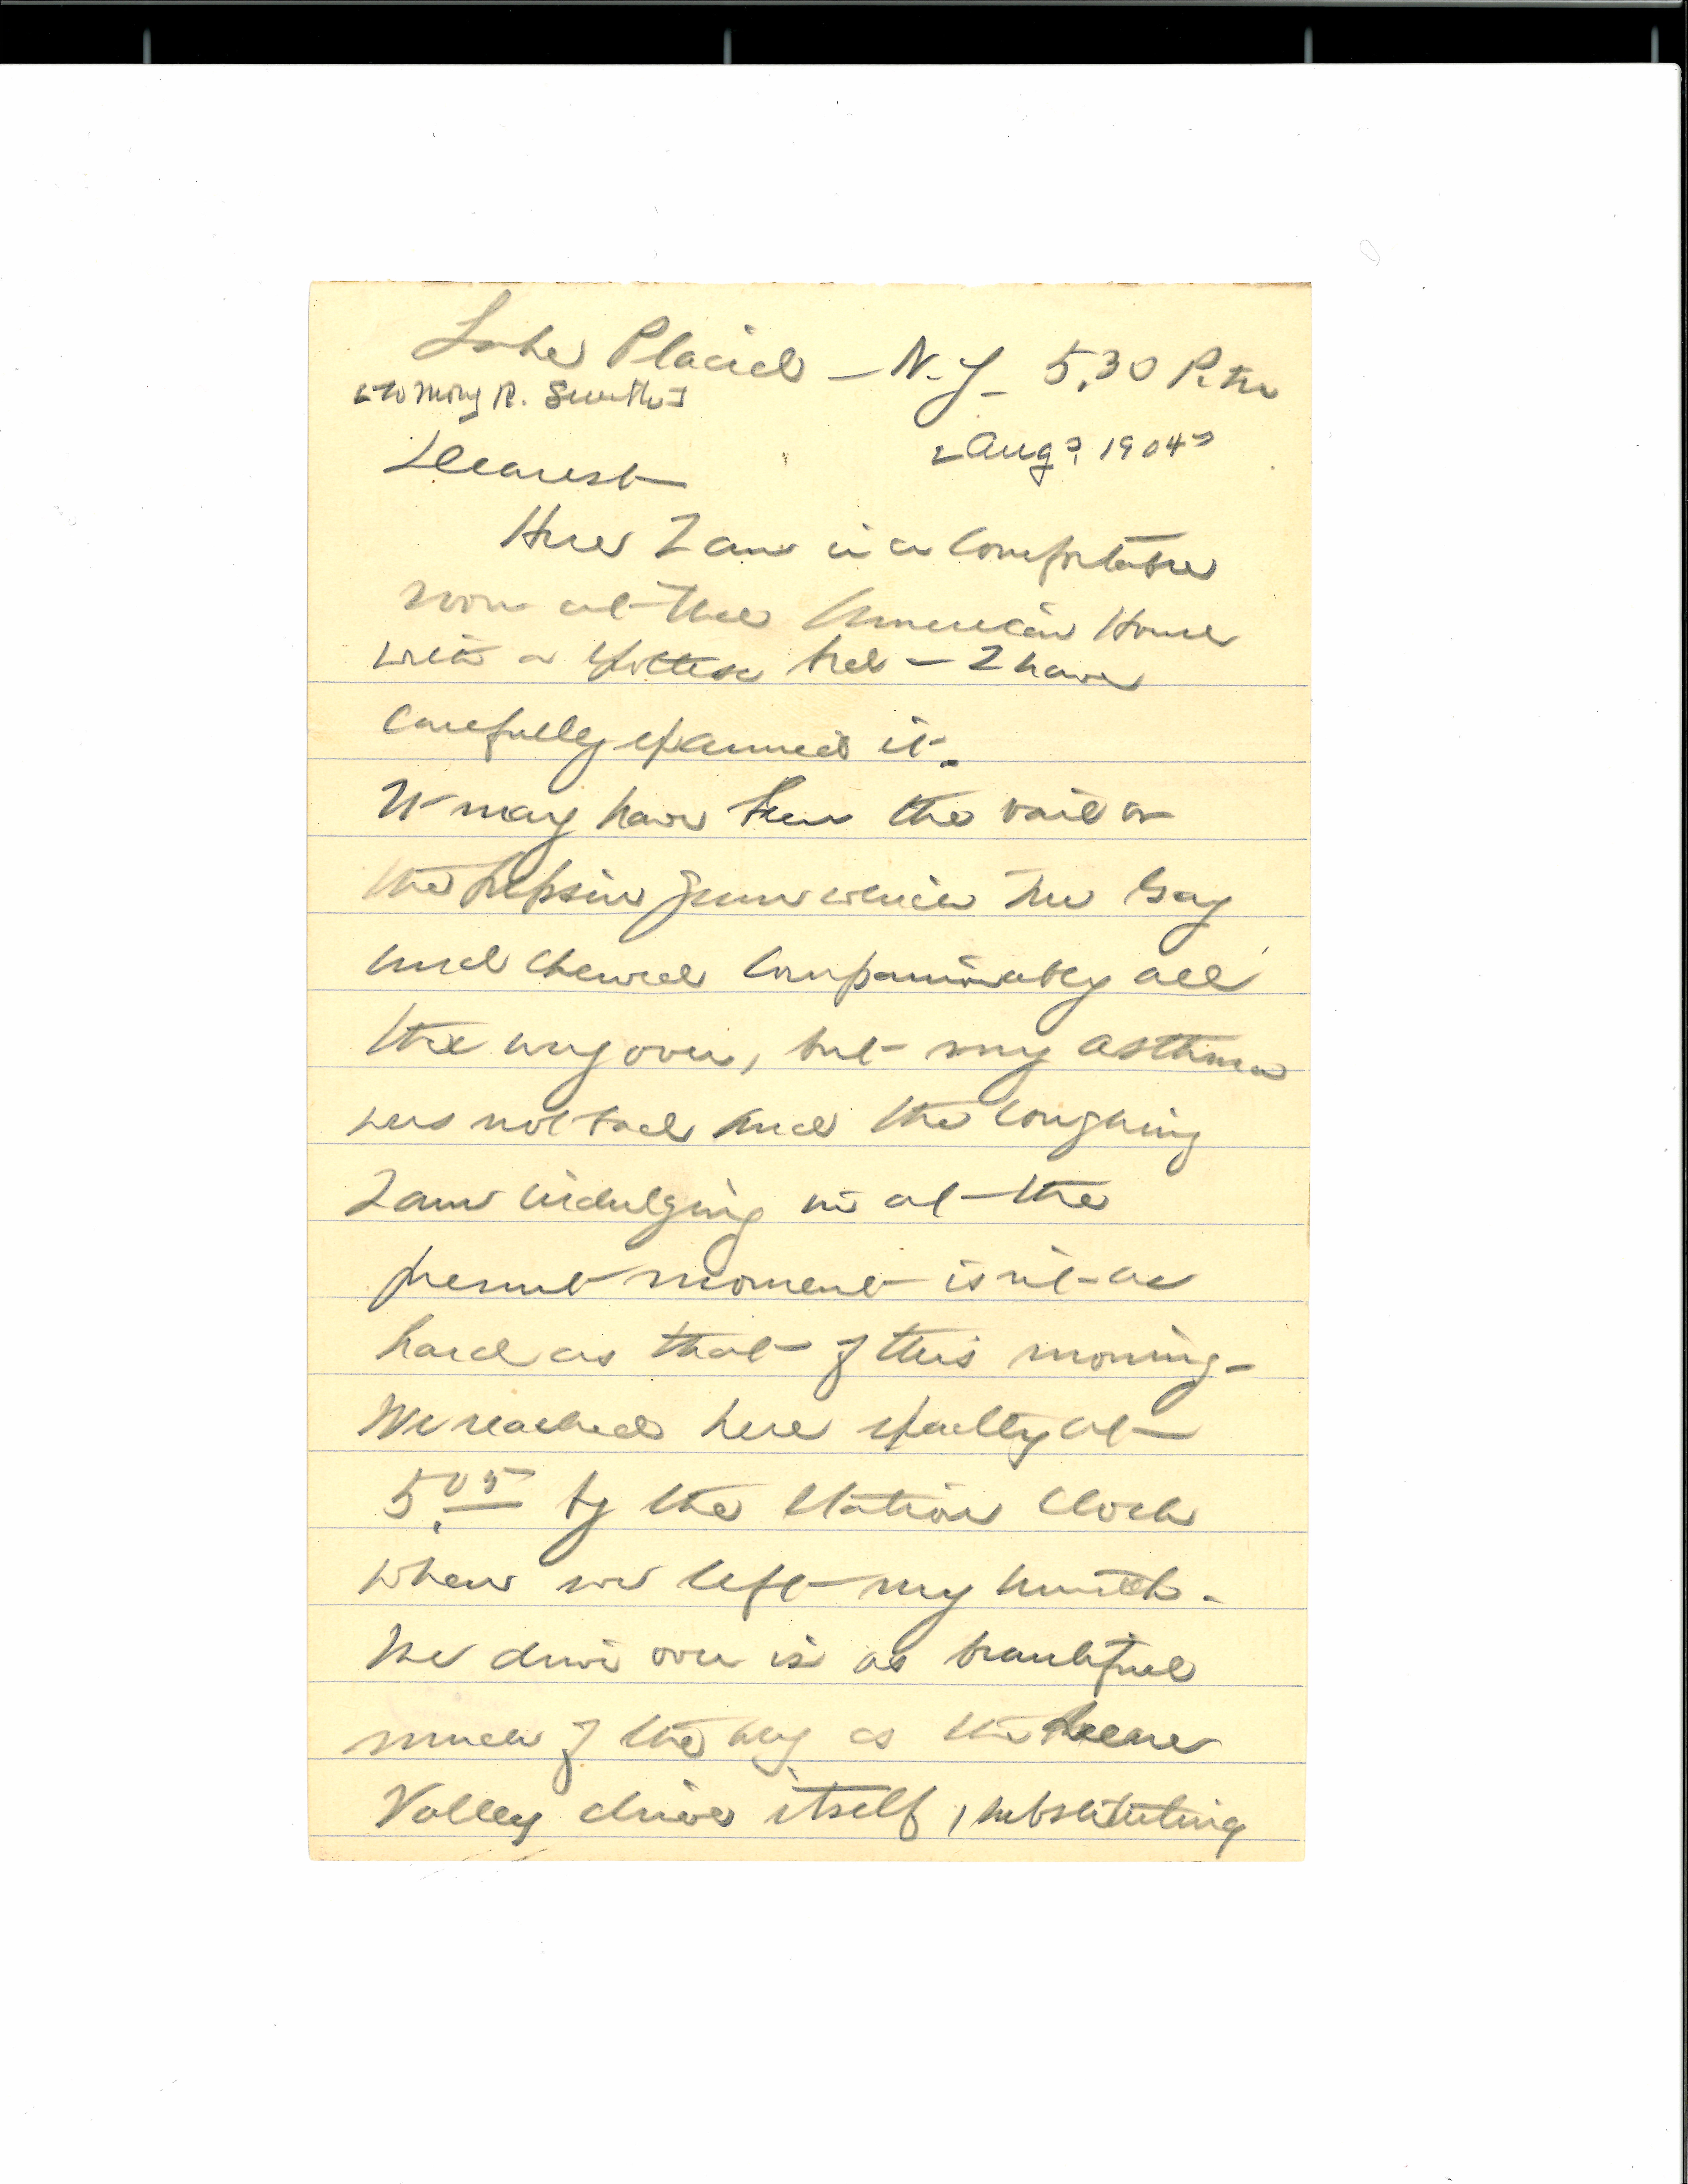 Lake Placid — N.Y — 5.30 P.M
[to Mary R. Smith]
Dearest
[Aug? 1904]
Here I am in a comfortable
room at the American House
with a spotless bed — I have
carefully examined it.
It may have been the rail or
the pepsin gum which Gay
and chewed companionably all
the way over, but my asthma
was not bad and the coughing
I am indulging in at the
present moment isn't as
hard as that of this morning —
We reached here exactly at
5.05 by the station clock
when we left my
The drive over is as beautiful
much of the way as the Keene
Valley drive itself, substituting